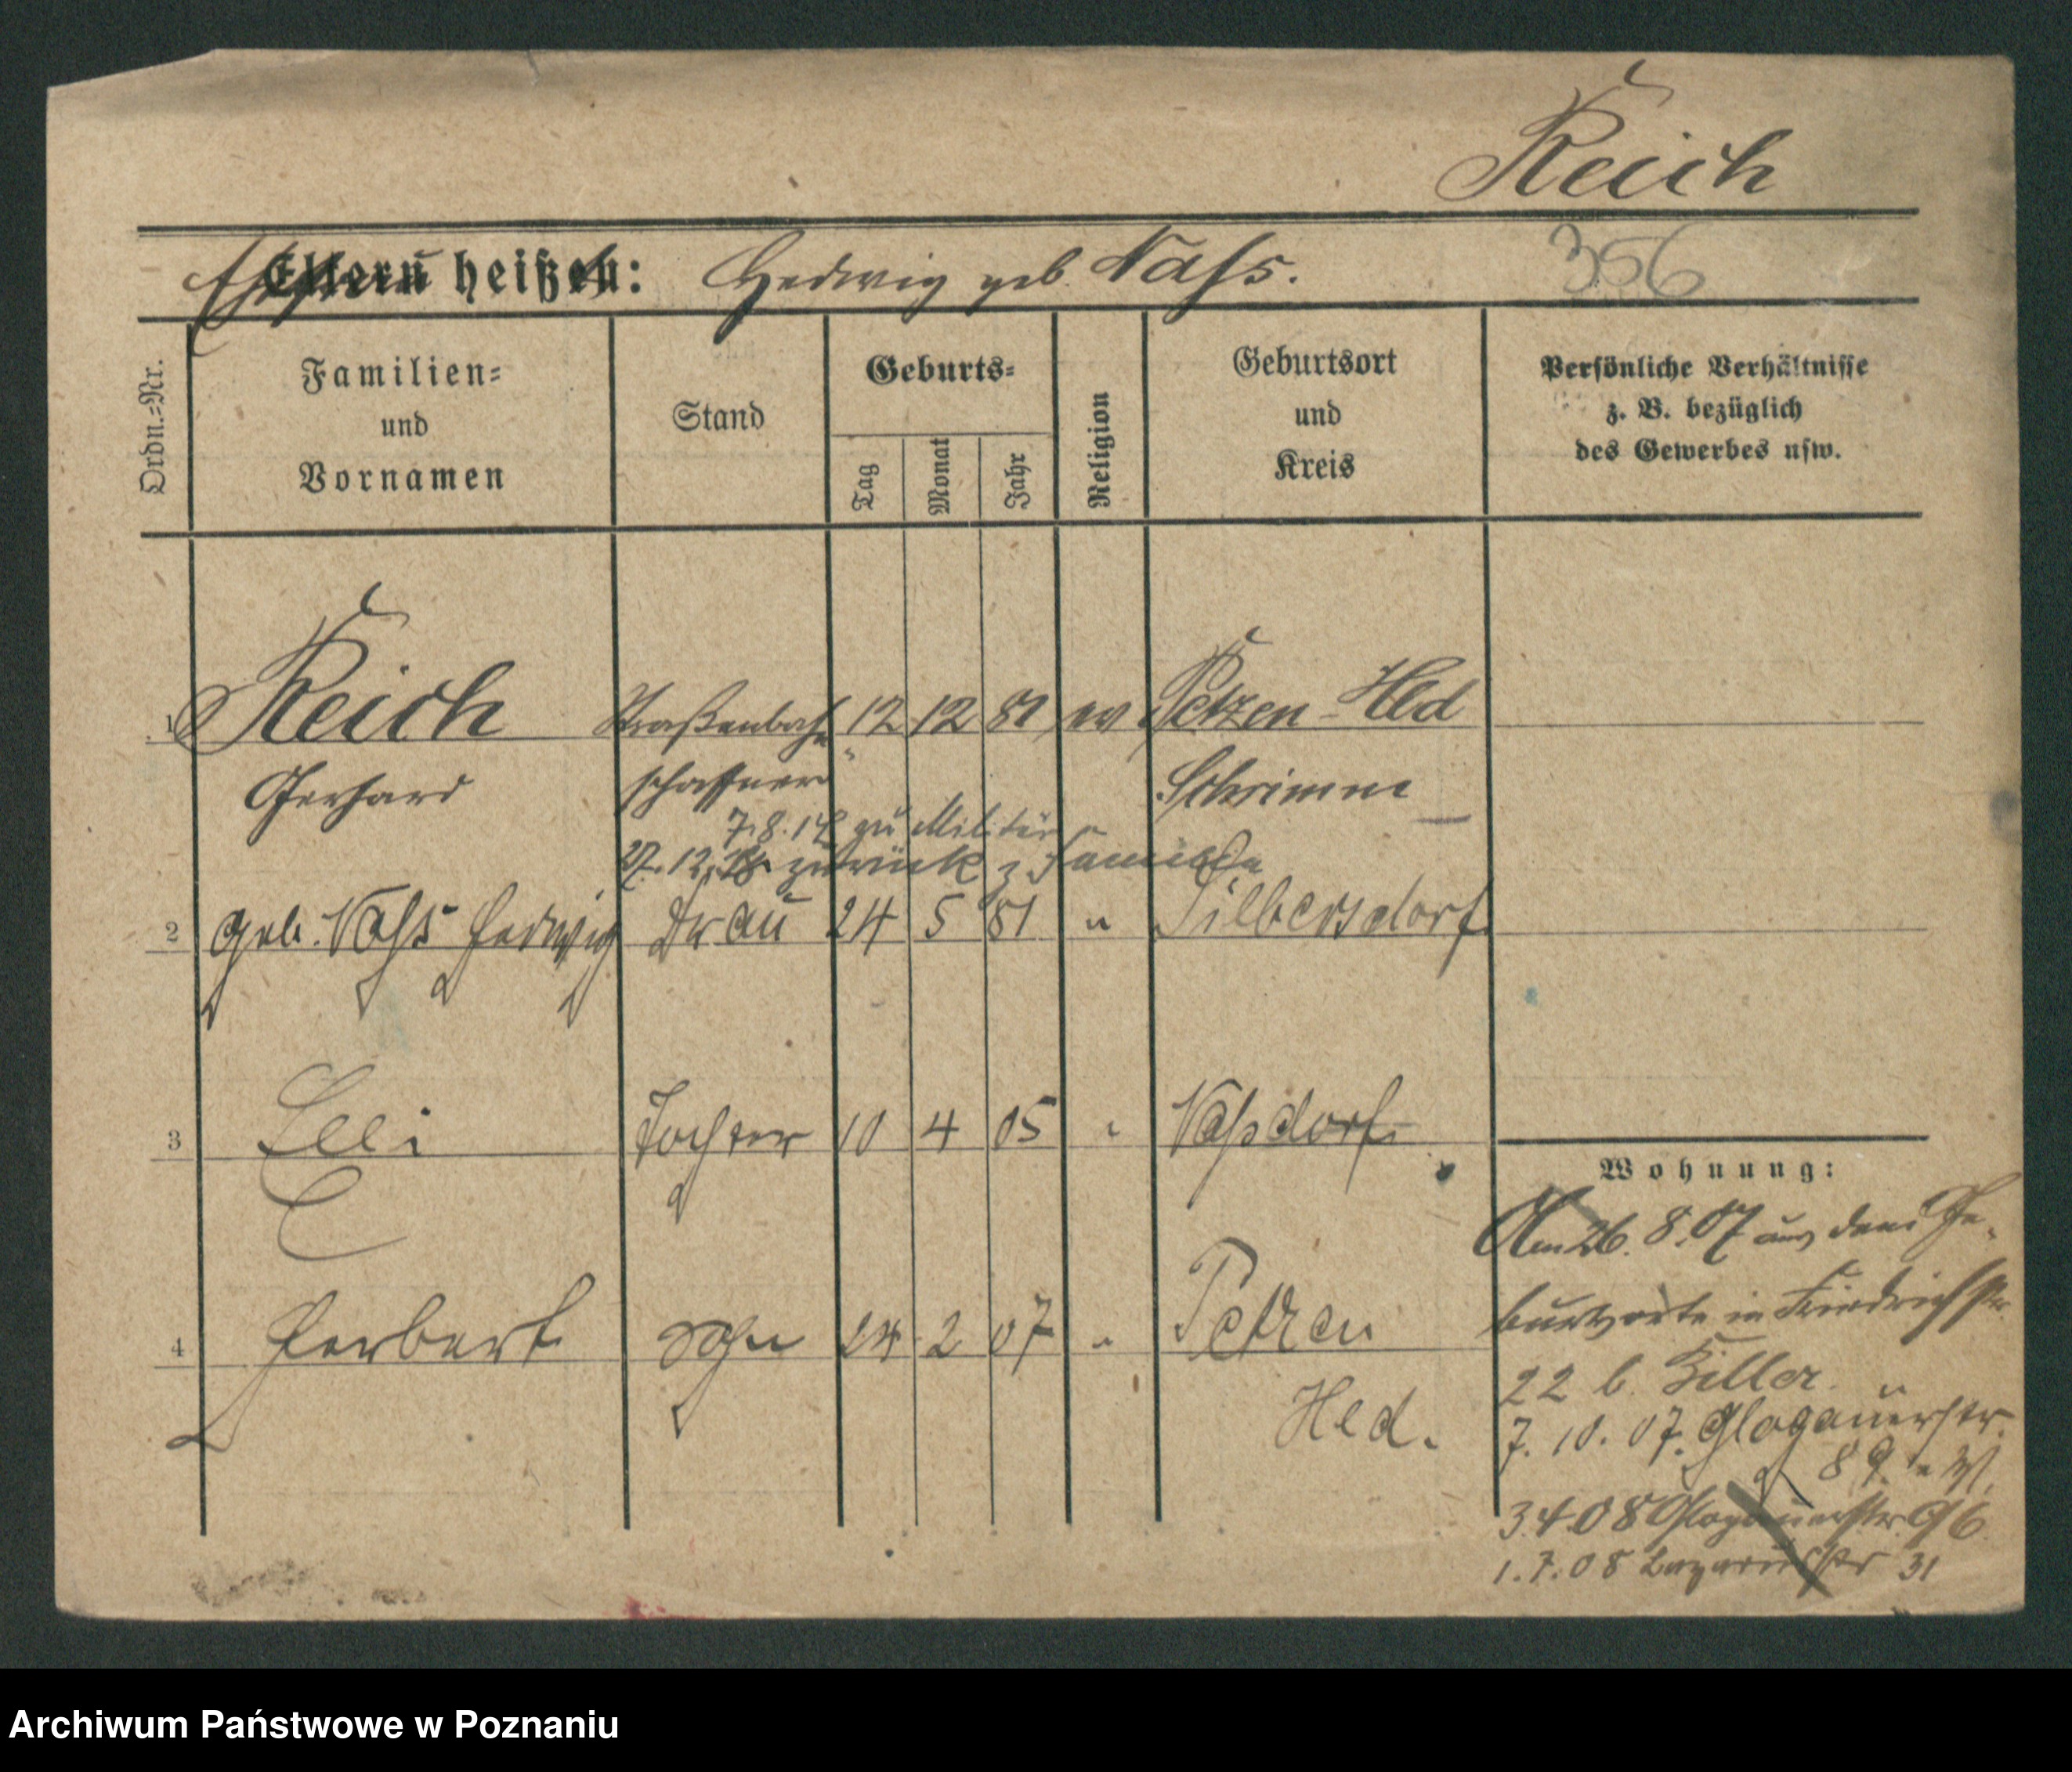 Reich
Eltern heißen: Hedwig geb. Nass.
356
Ordn.=Nr.
Familien=
und
Vornamen
Stand
Geburts=
Tag
Monat
Jahr
Religion
Geburtsort
und
Kreis
Persönliche Verhältnisse
z. B. bezüglich
des Gewerbes usw.
1 Reich Straßenbahn 12 12 81 ev Petzen-Hld
Gerhard schaffner Schrimm
7.8.14 zu Militär
27.12.18 zurück z. Familie
2 geb. Nass Hedwig Frau 24 5 81 " Silbersdorf
3 Elli Tochter 10 4 05 " Nassdorf
4 Herbert Sohn 24 2 07 " Petzen
Hld.
Wohnung:
Am 26.8.07 aus dem Ge-
burtsorte in Friedrichstr.
22 b. Ziller.
7.10.07. Glogauerstr.
89
3.4.08 Glogauerstr. 96
1.7.08 Lazarusstr 31
Archiwum Państwowe w Poznaniu